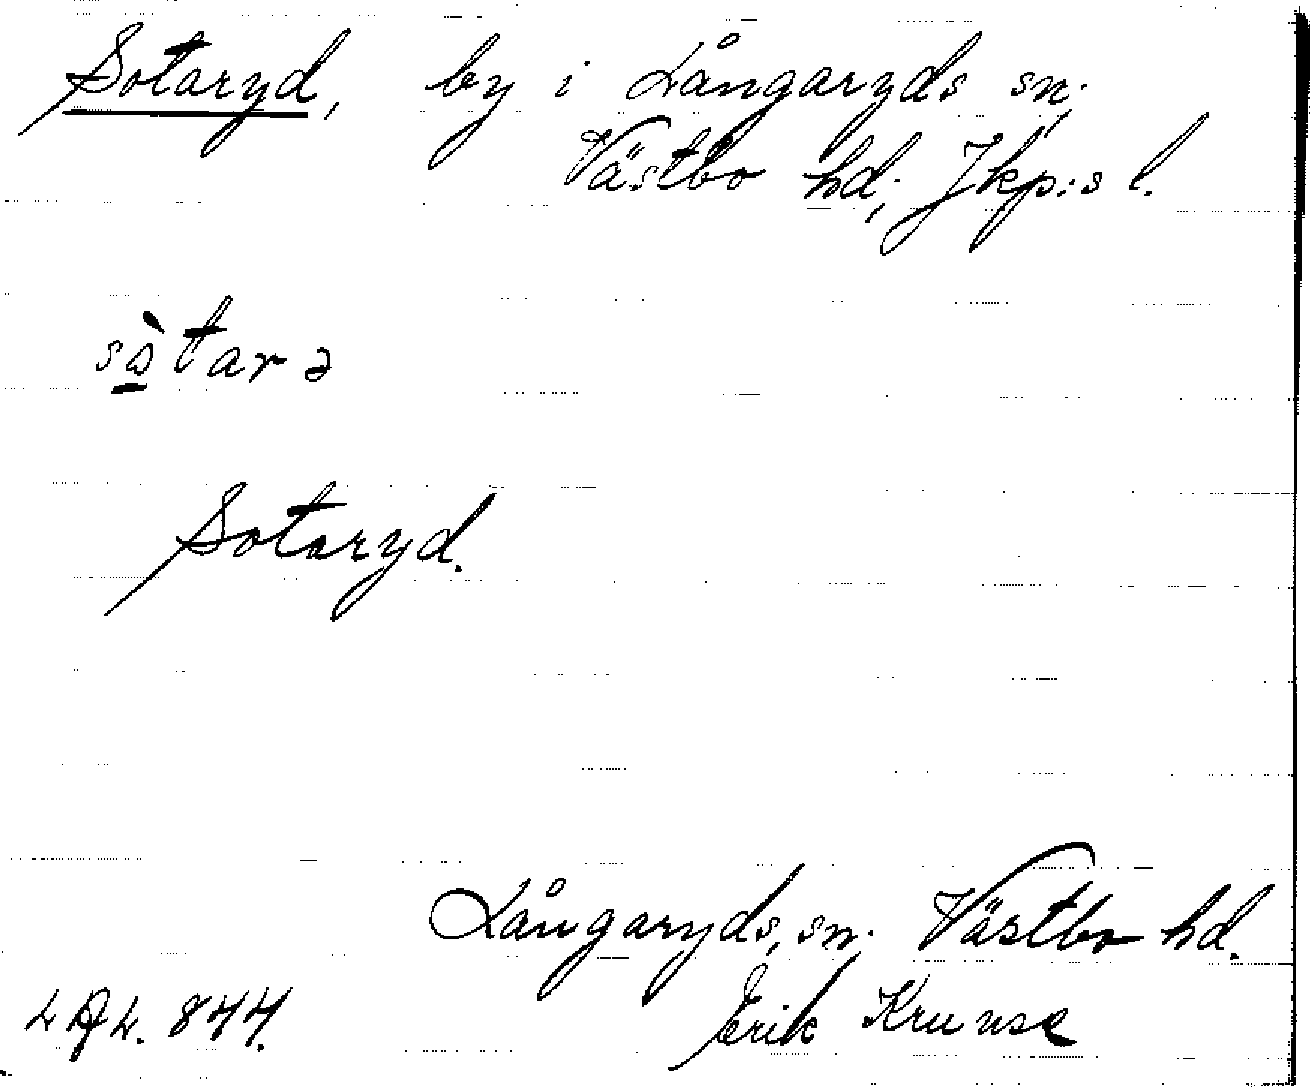 Sotaryd, by i Långaryds sn.
Västbo hd; Jkp:s l.
sòtarə
Sotaryd.
Långaryds, sn. Västbo hd.
844. Erik Krunse